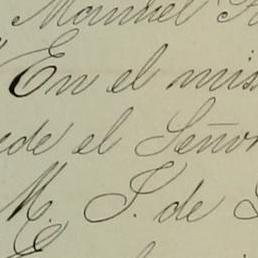 Manuel
En el mis
ede el Señor
M. S. de